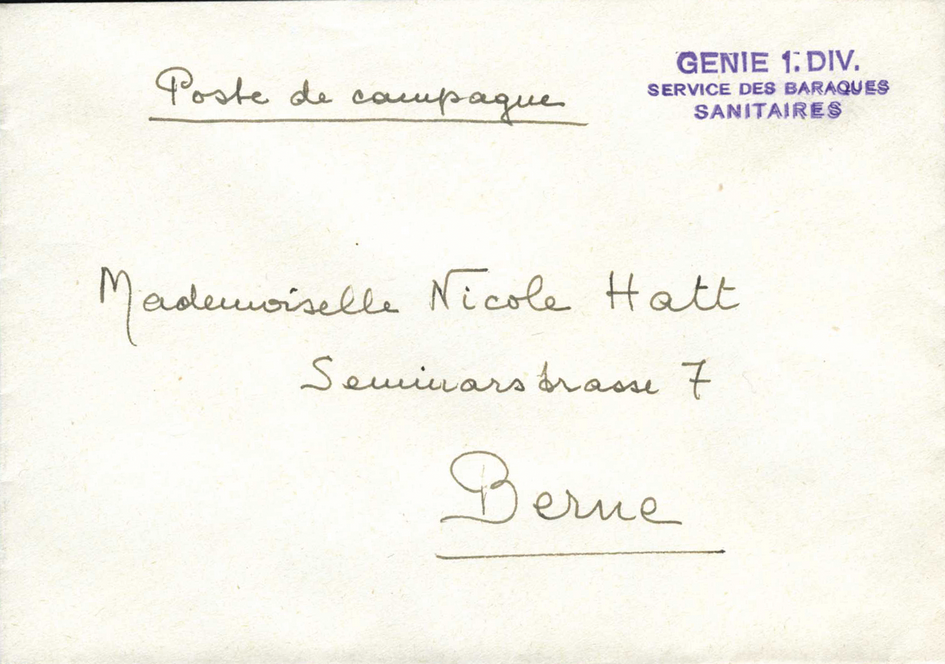 Poste de campagne
GENIE 1. DIV.
SERVICE DES BARAQUES
SANITAIRES
Mademoiselle Nicole Hatt
Seminarstrasse 7
Berne